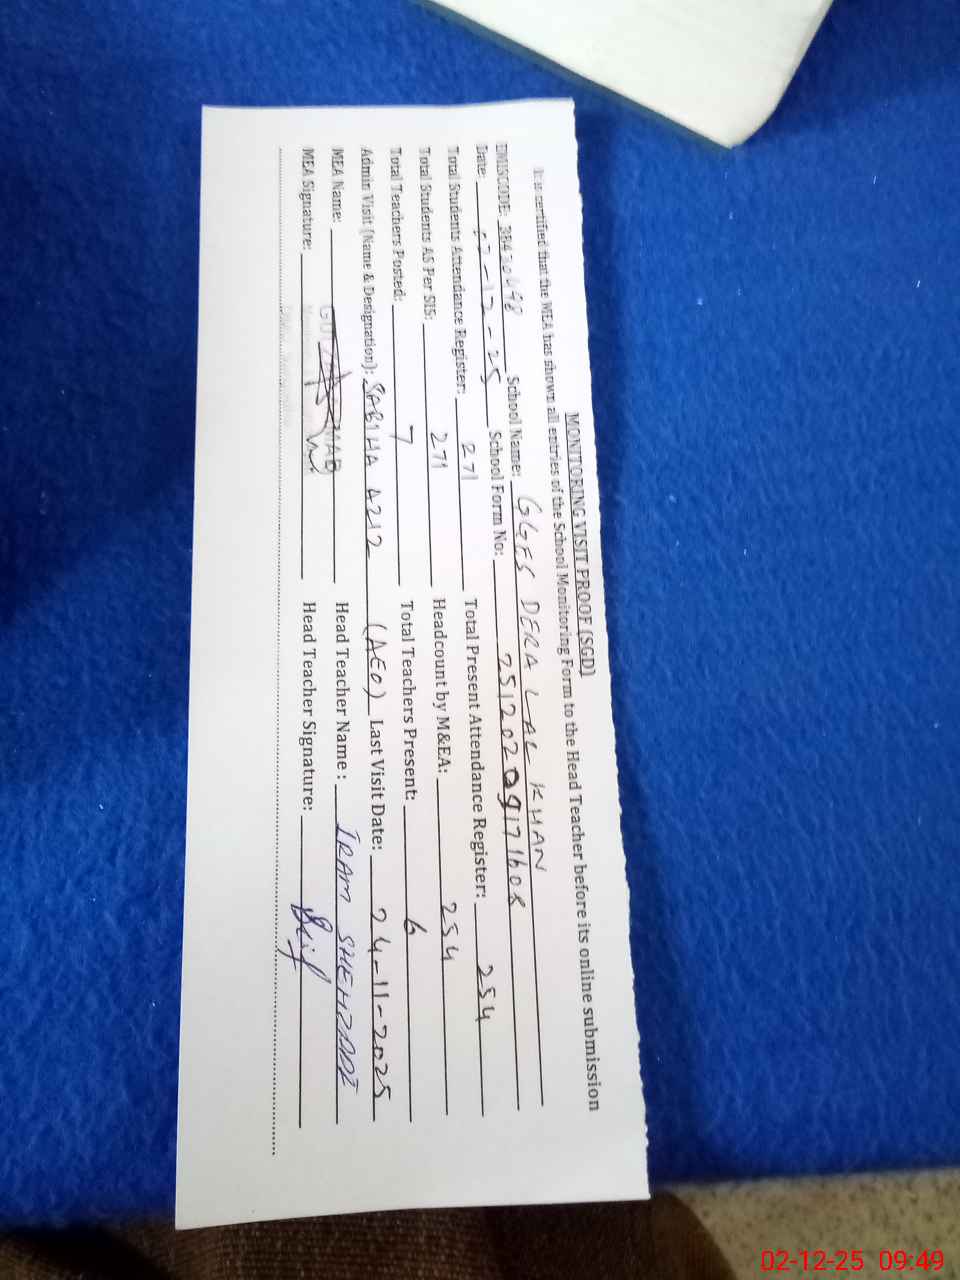 MONITORING VISIT PROOF (SGD)
It is certified that the MEA has shown all entries of the School Monitoring Form to the Head Teacher before its online submission
EMISCODE: School Name: GGES DERA LAL KHAN
Date: 02-12-25 School Form No:
Total Students Attendance Register: 271 Total Present Attendance Register: 254
Total Students AS Per SIS: 271 Headcount by M&EA: 254
Total Teachers Posted: 7 Total Teachers Present: 6
Admin Visit (Name & Designation): SABIHA AZIZ (AEO) Last Visit Date: 24-11-2025
MEA Name: Head Teacher Name: IRAM SHEHZADI
MEA Signature: Head Teacher Signature:
02-12-25 09:49